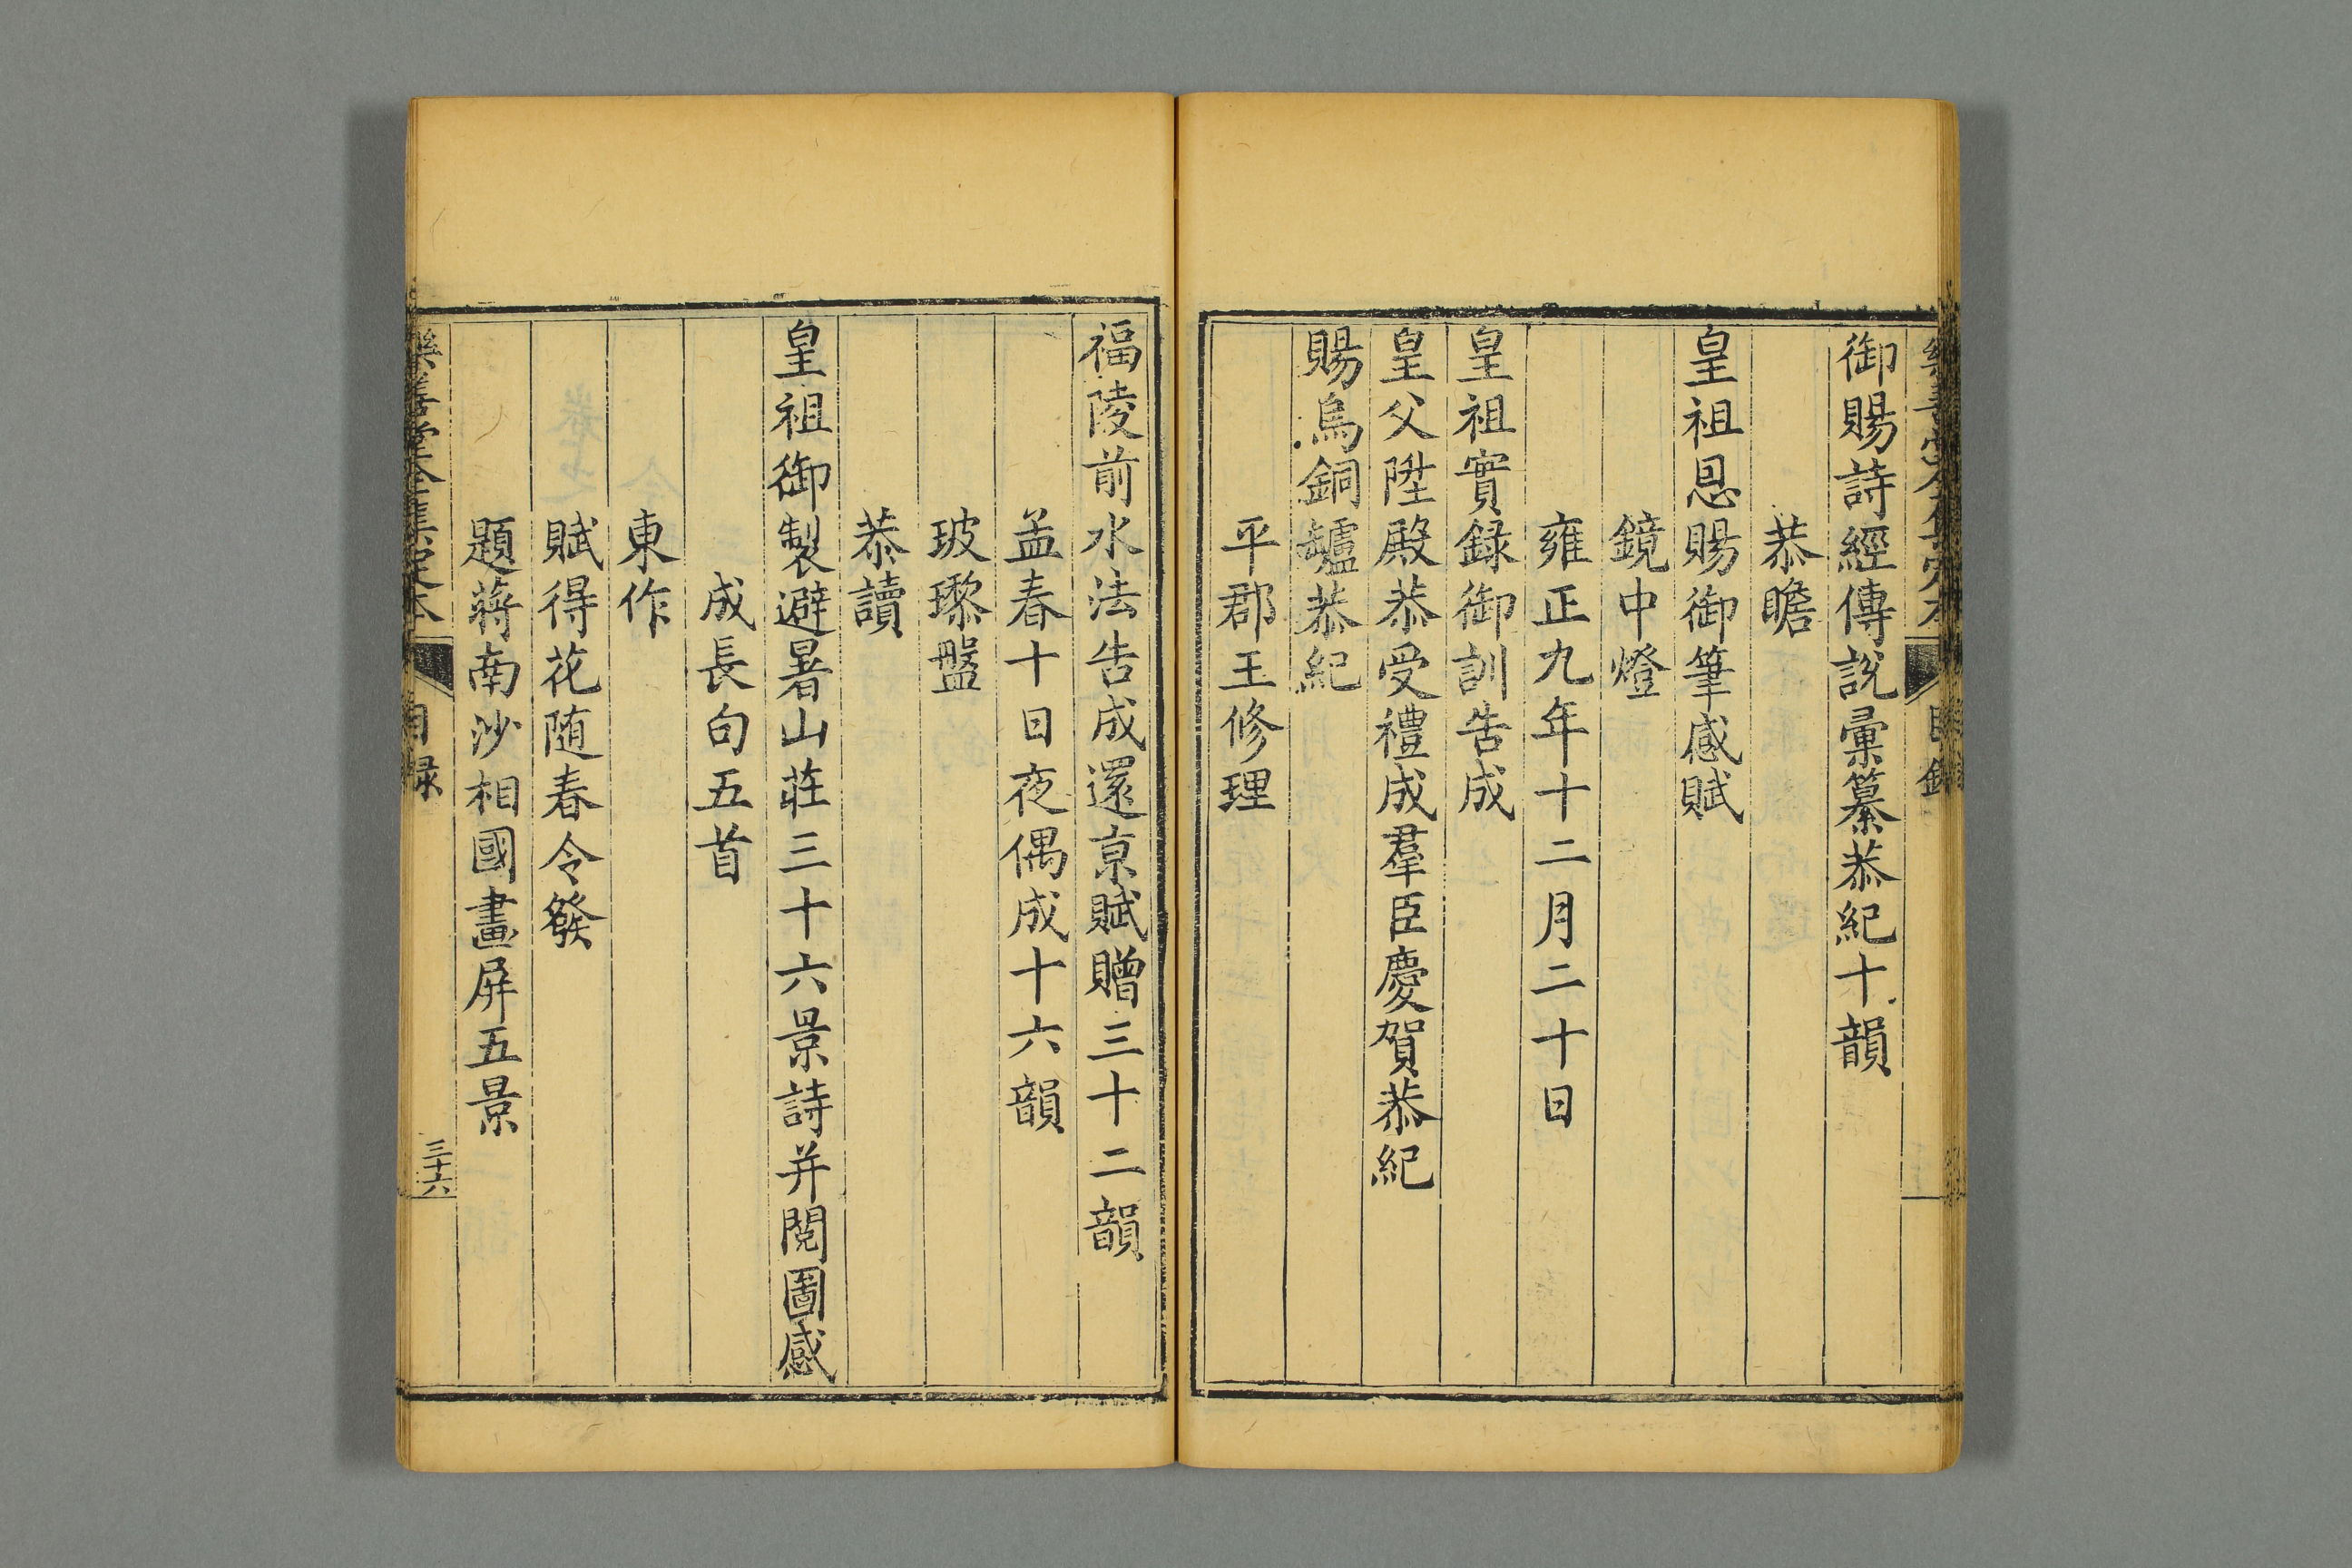 御賜詩經傳說彙纂恭紀十韻
恭瞻
皇祖恩賜御筆感賦
鏡中燈
雍正九年十二月二十日
皇祖實録御訓告成
皇父陞殿恭受禮成羣臣慶賀恭紀
賜烏銅罏恭紀
平郡王修理
福陵前水法告成還京賦贈三十二韻
孟春十日夜偶成十六韻
玻瓈盤
恭讀
皇祖御製避暑山莊三十六景詩并閱圖感
成長句五首
東作
賦得花随春令發
題蔣南沙相國畫屏五景
樂善堂全集定本
目録
三十六